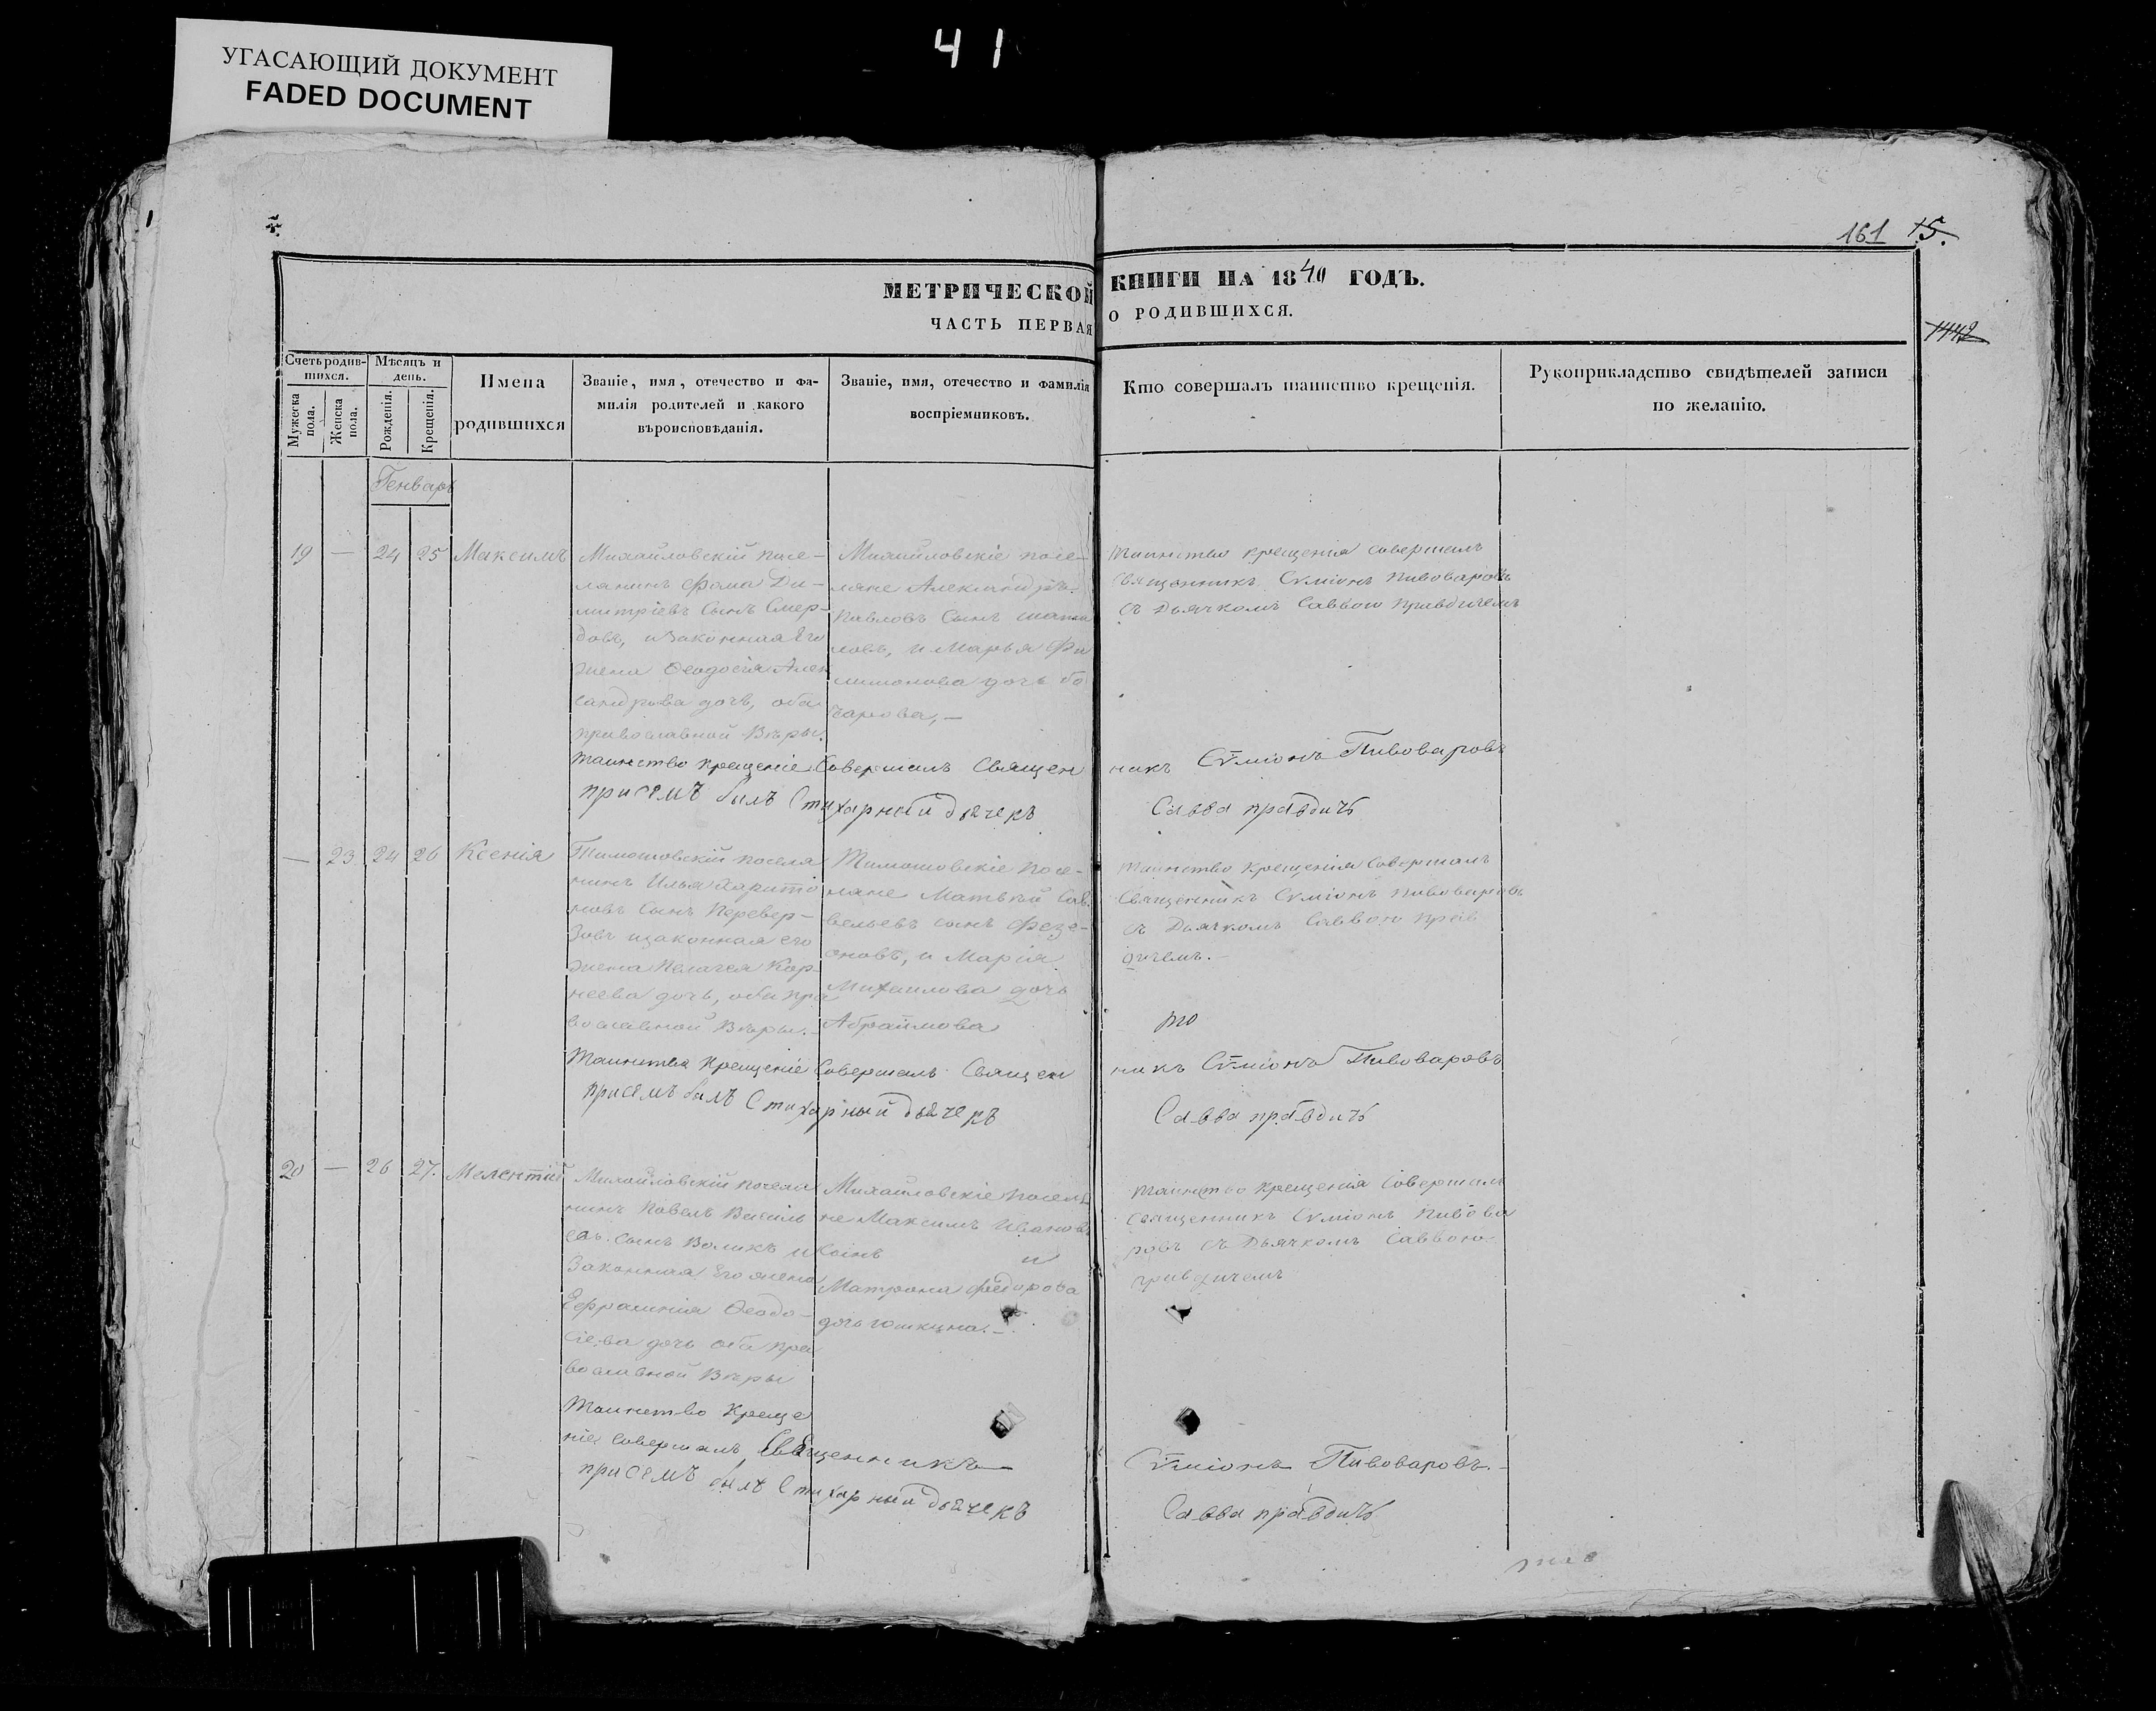 41
УГАСАЮЩИЙ ДОКУМЕНТ
FADED DOCUMENT
161 15.
МЕТРИЧЕСКОЙ КНИГИ НА 1840 ГОДЪ.
ЧАСТЬ ПЕРВАЯ О РОДИВШИХСЯ.
1142
Счетъ родив-
шихся.
Мужеска
пола.
Женска
пола.
Мѣсяцъ и
день.
Рожденія.
Крещенія.
Имена
родившихся
Званіе, имя, отечество и фа-
милія родителей и какого
вѣроисповѣданія.
Званіе, имя, отечество и фамилія
воспріемниковъ.
Кто совершалъ таинство крещенія.
Рукоприкладство свидѣтелей записи
по желанію.
Генварь
19 — 24 25 Максимъ
Михайловскій посе-
лянинъ Фома Ди-
митріевъ Сынъ Смер-
довъ, и Законная Его
жена Ѳеодосія Алек
сандрова дочь, оба
православной Вѣры.
Михайловскіе посе-
ляне Александръ
Павловъ Сынъ
ловъ, и Марья Фи
лимонова дочь бо
чарова, —
Таинство крещенія совершалъ
священникъ Сѵміонъ Пивоваровъ
съ Дьячкомъ Саввою Правдичемъ
Таинство крещеніе Совершалъ Священ
никъ Сѵміонъ Пивоваровъ
присемъ былъ Стихарный дьячекъ
Савва правдичъ
— 23 24 26 Ксенія
Тимошовскій поселя
нинъ Илья Харито
новъ Сынъ Перевер-
зовъ изаконная его
жена Пелагея Кор-
неева дочь, оба пра
вославной Вѣры.
Тимошовскіе Посе-
ляне Матвѣй Сав
вельевъ сынъ Фезе-
оновъ, и Марія
Михаилова дочь
Абраимова
Таинство Крещенія Совершалъ
Священникъ Сѵміонъ Пивоваровъ
съ Дьячкомъ Саввою прав
дичемъ.—
то
Таинства Крещеніе Совершалъ Священ
никъ Сѵміонъ Пивоваровъ
присемъ былъ Стихарный дьячекъ
Савва правдичъ
20 — 26 27. Мелентій
Михайловскій поселя
нинъ Павелъ Василь
евъ сынъ Воликъ и
Законная Его жена
Ефрасинія Ѳеодо-
сіева дочь оба пра
вославной Вѣры
Михайловскіе поселя
не Максимъ Ивановъ
Сынъ и
Матрона Федорова
дочь
Таинство Крещенія Совершалъ
священникъ Сѵміонъ Пивова
ровъ съ Дьячкомъ Саввою
правдичемъ
Таинство Креще
ніе совершалъ Священникъ
Сѵміонъ Пивоваровъ.
присемъ былъ Стихарный дьячекъ
Савва правдичъ